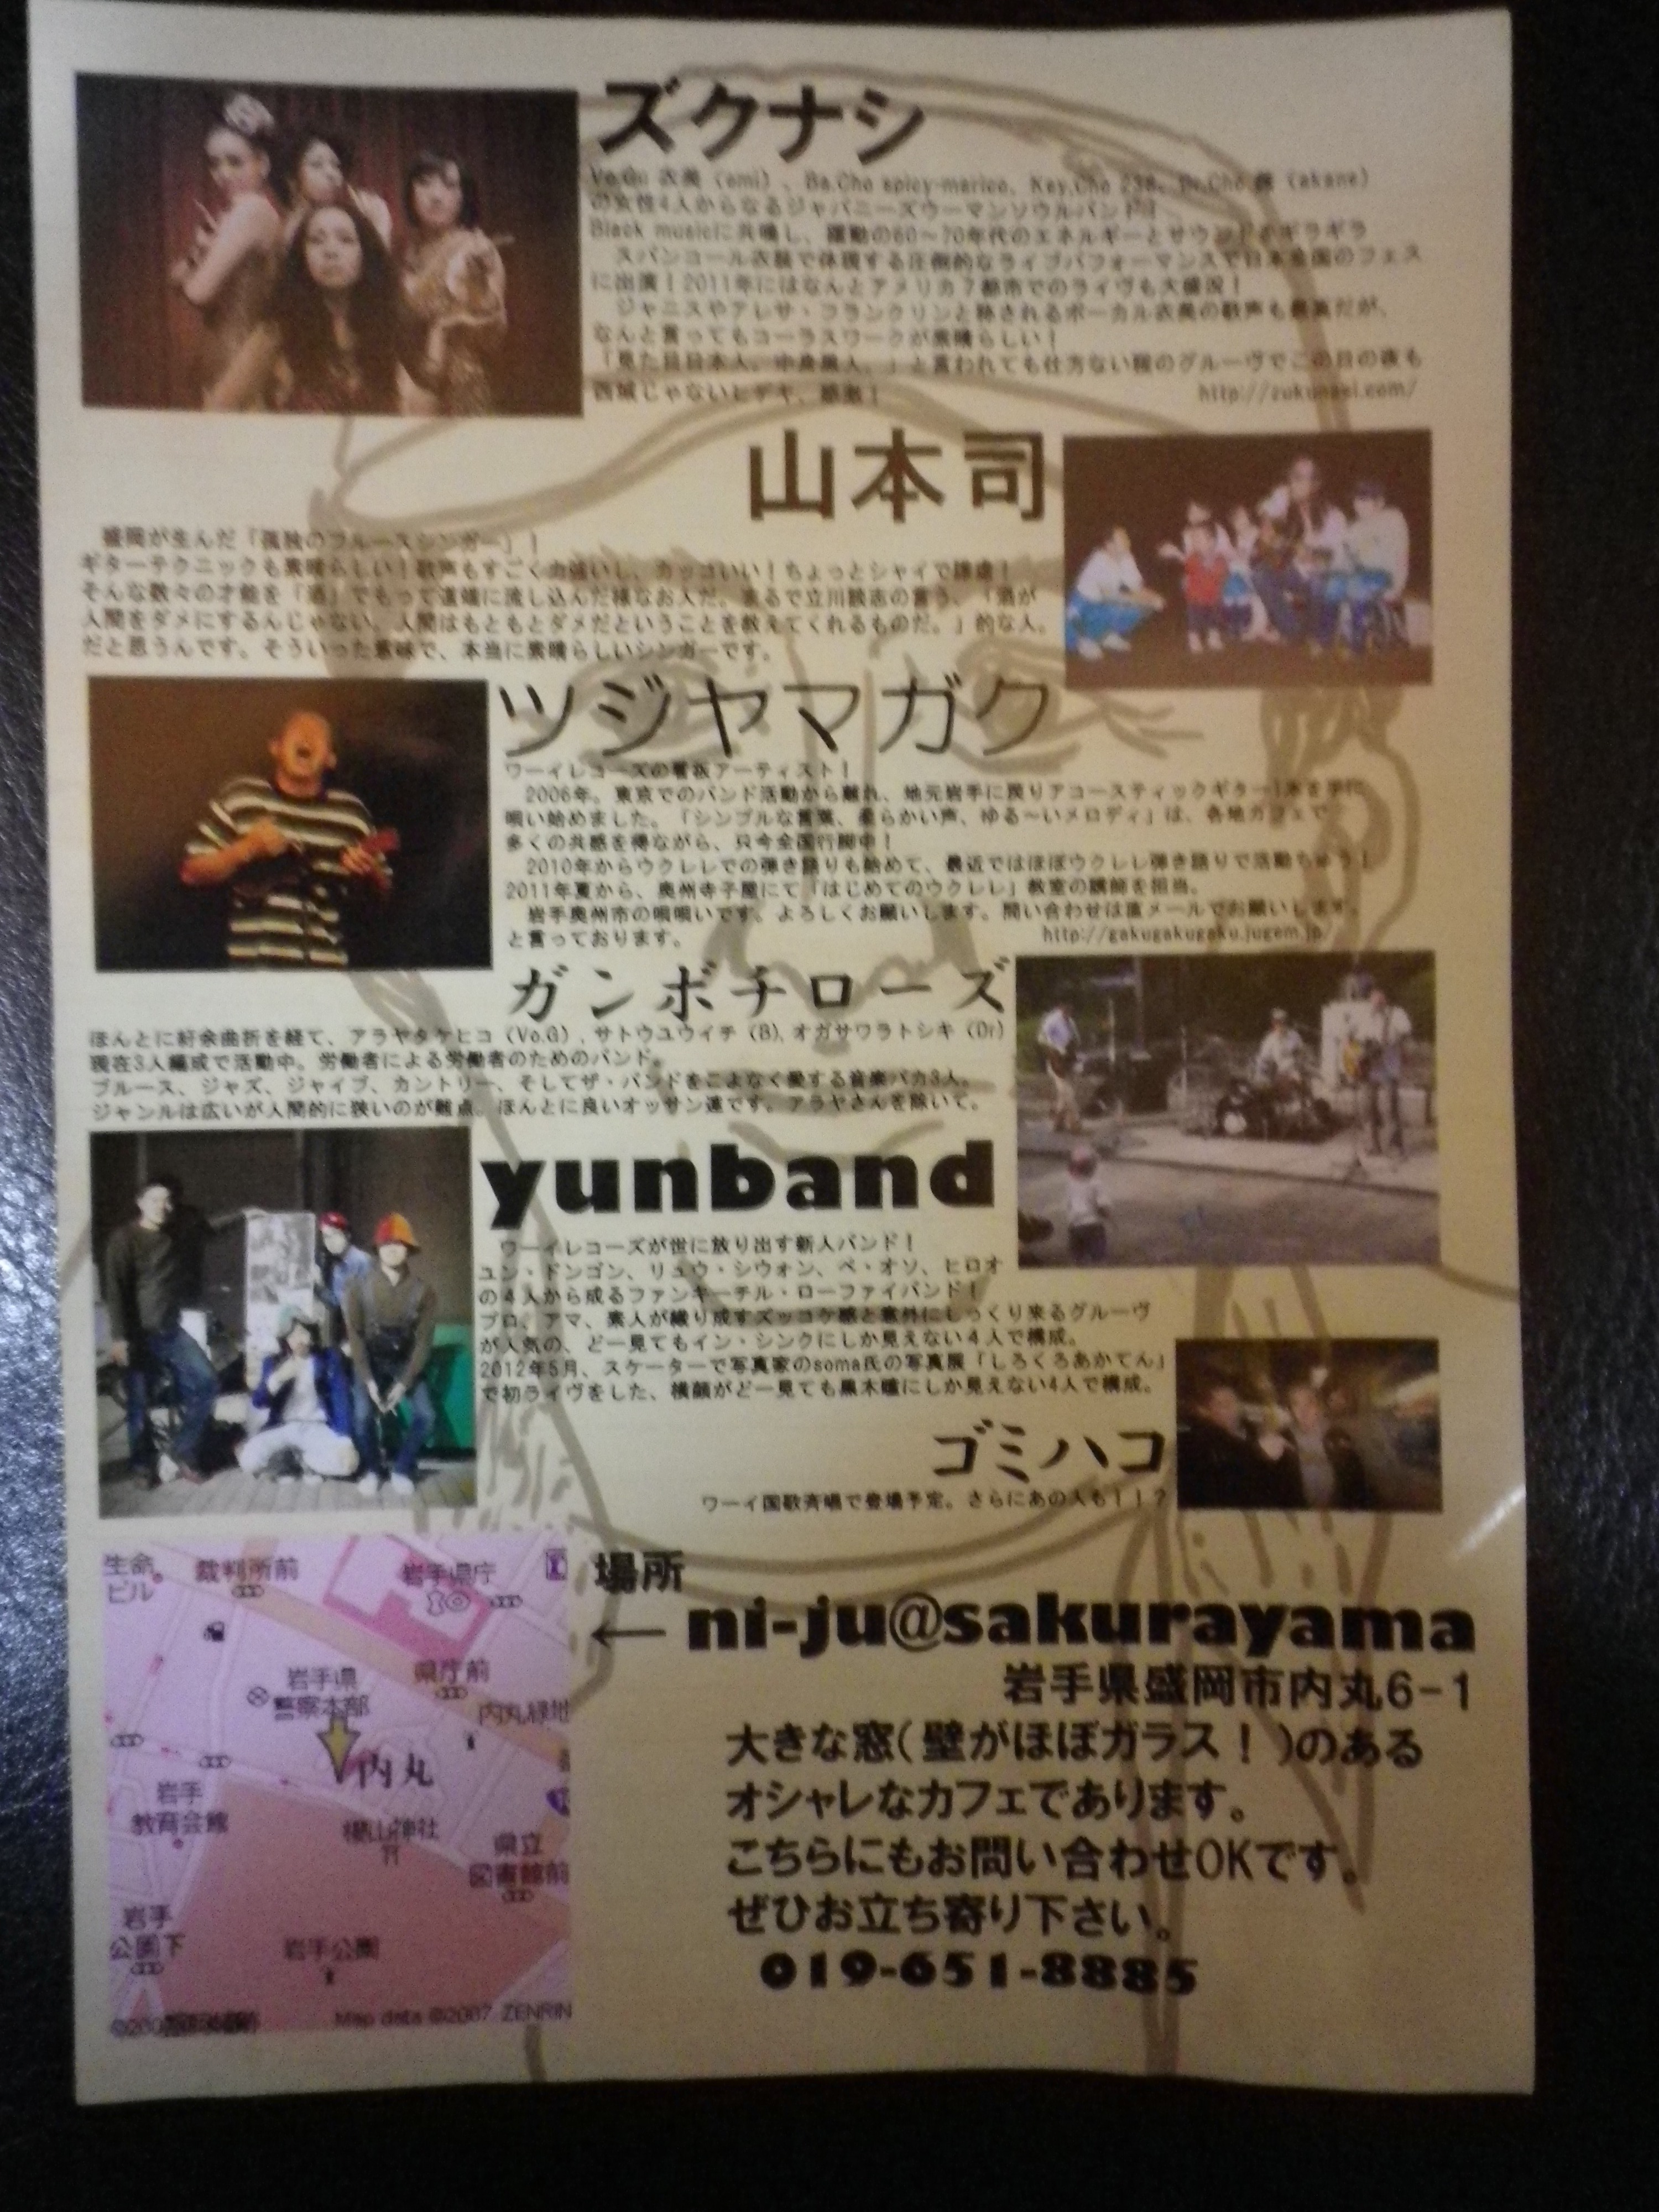 ズクナシ
Vo.Gu 衣美（emi）、Ba.Cho spicy-marico、Key.Cho 238、Dr.Cho 茜（akane）
の女性4人からなるジャパニーズウーマンソウルバンド！
Black musicに共鳴し、躍動の60〜70年代のエネルギーとサウンドをギラギラ
スパンコール衣装で体現する圧倒的なライブパフォーマンスで日本全国のフェス
に出演！2011年にはなんとアメリカ7都市でのライヴも大盛況！
ジャニスやアレサ・フランクリンと称されるボーカル衣美の歌声も最高だが、
なんと言ってもコーラスワークが素晴らしい！
「見た目日本人、中身黒人。」と言われても仕方ない程のグルーヴでこの日の夜も
西城じゃないヒデキ、感激！
http://zukunasi.com/
山本司
盛岡が生んだ「孤独のブルースシンガー」！
ギターテクニックも素晴らしい！歌声もすごく力強いし、カッコいい！ちょっとシャイで謙虚！
そんな数々の才能を「酒」でもって道端に流し込んだ様なお人だ。まるで立川談志の言う、「酒が
人間をダメにするんじゃない。人間はもともとダメだということを教えてくれるものだ。」的な人。
だと思うんです。そういった意味で、本当に素晴らしいシンガーです。
ツジヤマガク
ワーイレコーズの看板アーティスト！
2006年。東京でのバンド活動から離れ、地元岩手に戻りアコースティックギター1本を手に
唄い始めました。「シンプルな言葉、柔らかい声、ゆる〜いメロディ」は、各地カフェで
多くの共感を得ながら、只今全国行脚中！
2010年からウクレレでの弾き語りも始めて、最近ではほぼウクレレ弾き語りで活動ちゅう！
2011年夏から、奥州寺子屋にて「はじめてのウクレレ」教室の講師を担当。
岩手奥州市の唄唄いです。よろしくお願いします。問い合わせは直メールでお願いします。
と言っております。
http://gakugakugaku.jugem.jp/
ガンボチローズ
ほんとに紆余曲折を経て、アラヤタケヒコ（Vo.G）, サトウユウイチ（B）, オガサワラトシキ（Dr）
現在3人編成で活動中。労働者による労働者のためのバンド。
ブルース、ジャズ、ジャイブ、カントリー、そしてザ・バンドをこよなく愛する音楽バカ3人。
ジャンルは広いが人間的に狭いのが難点。ほんとに良いオッサン達です。アラヤさんを除いて。
yunband
ワーイレコーズが世に放り出す新人バンド！
ユン・ドンゴン、リュウ・シウォン、ペ・オソ、ヒロオ
の4人から成るファンキーチル・ローファイバンド！
プロ、アマ、素人が織り成すズッコケ感と意外にしっくり来るグルーヴ
が人気の、どー見てもイン・シンクにしか見えない4人で構成。
2012年5月、スケーターで写真家のsoma氏の写真展「しろくろあかてん」
で初ライヴをした、横顔がどー見ても黒木瞳にしか見えない4人で構成。
ゴミハコ
ワーイ国歌斉唱で登場予定。さらにあの人も！！？
場所
←ni-ju@sakurayama
岩手県盛岡市内丸6-1
大きな窓（壁がほぼガラス！）のある
オシャレなカフェであります。
こちらにもお問い合わせOKです。
ぜひお立ち寄り下さい。
019-651-8885
生命
ビル
裁判所前
岩手県庁
岩手県
警察本部
県庁前
内丸緑地
内丸
岩手
教育会館
櫻山神社
県立
図書館前
岩手
公園下
岩手公園
Map data ©2007 ZENRIN